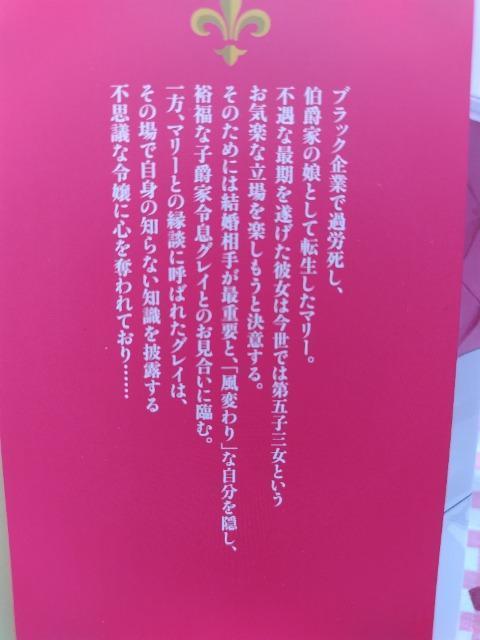 ブラック企業で過労死し、
伯爵家の娘として転生したマリー。
不遇な最期を遂げた彼女は今世では第五子三女という
お気楽な立場を楽しもうと決意する。
そのためには結婚相手が最重要と、「風変わり」な自分を隠し、
裕福な子爵家令息グレイとのお見合いに臨む。
一方、マリーとの縁談に呼ばれたグレイは、
その場で自身の知らない知識を披露する
不思議な令嬢に心を奪われており……